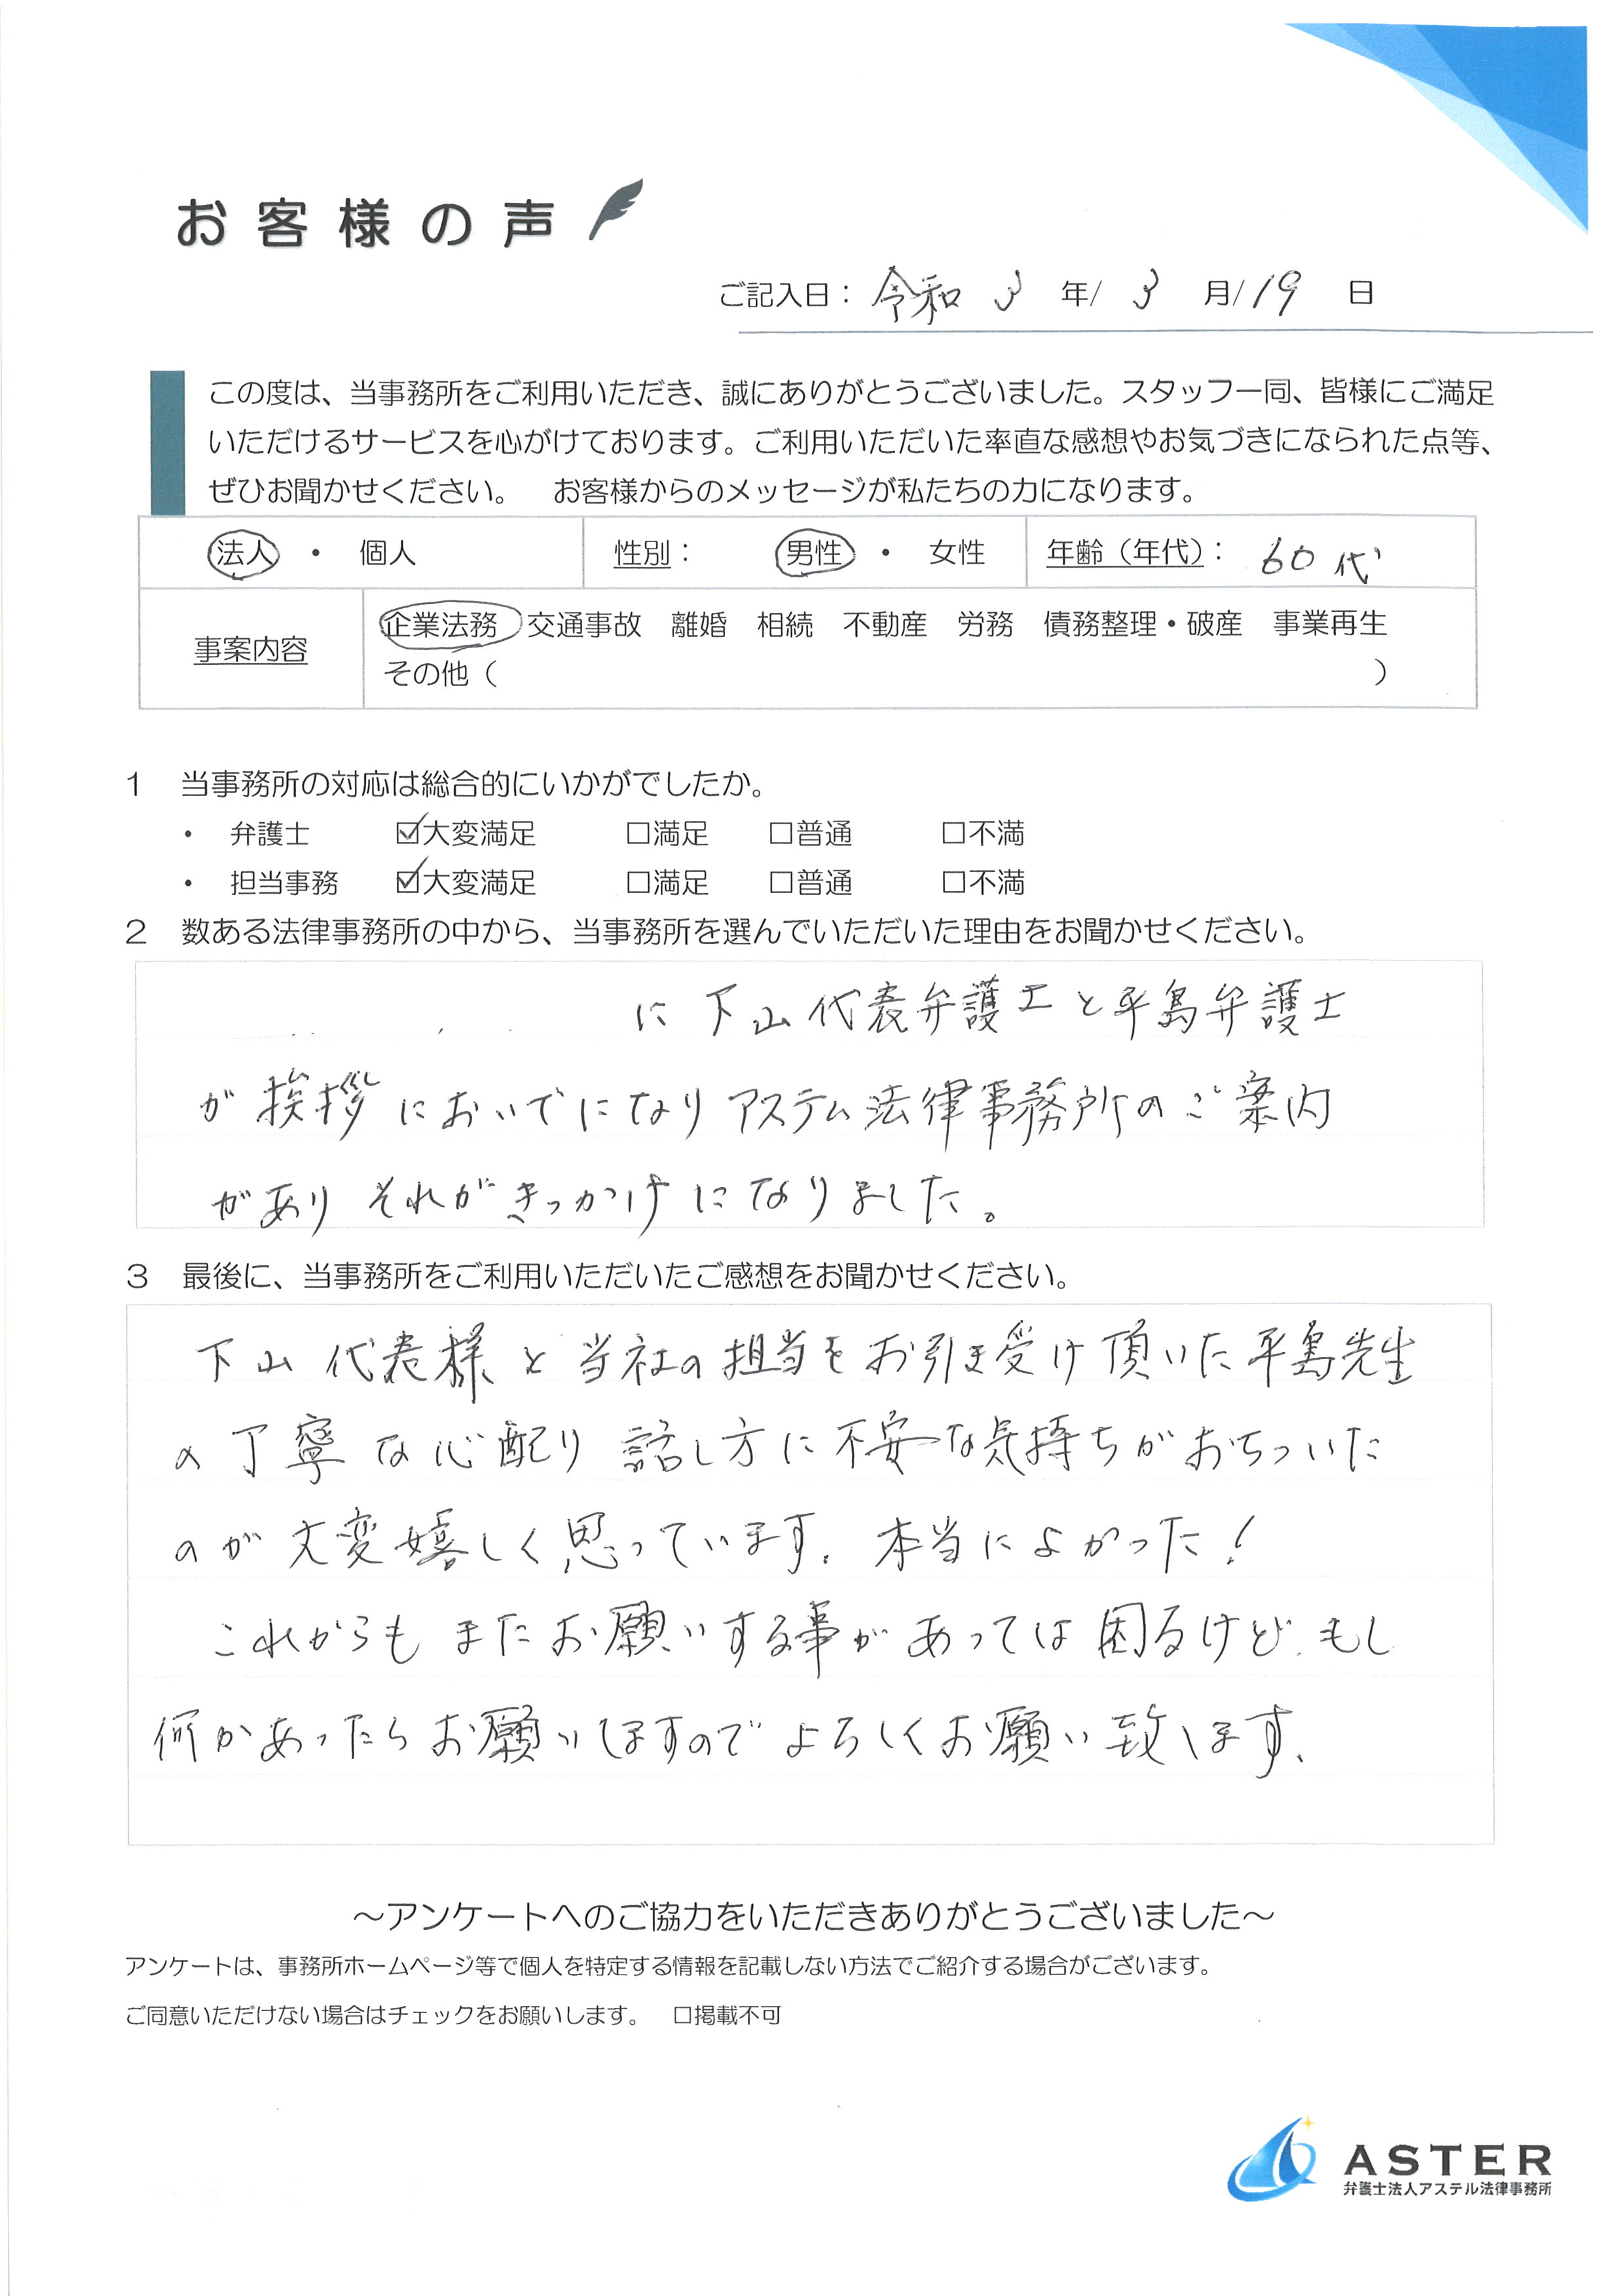 お客様の声
ご記入日： 令和 3 年/ 3 月/ 19 日
この度は、当事務所をご利用いただき、誠にありがとうございました。スタッフ一同、皆様にご満足
いただけるサービスを心がけております。ご利用いただいた率直な感想やお気づきになられた点等、
ぜひお聞かせください。 お客様からのメッセージが私たちの力になります。
法人 ・ 個人 性別： 男性 ・ 女性 年齢（年代）： 60代
事案内容
企業法務 交通事故 離婚 相続 不動産 労務 債務整理・破産 事業再生
その他（ ）
1 当事務所の対応は総合的にいかがでしたか。
・ 弁護士 ☑大変満足 □満足 □普通 □不満
・ 担当事務 ☑大変満足 □満足 □普通 □不満
2 数ある法律事務所の中から、当事務所を選んでいただいた理由をお聞かせください。
に下山代表弁護士と平島弁護士
が挨拶においでになりアステム法律事務所のご案内
があり それがきっかけになりました。
3 最後に、当事務所をご利用いただいたご感想をお聞かせください。
下山代表様と当社の担当をお引き受け頂いた平島先生
の丁寧な心配り 話し方に不安な気持ちがおちついた
のが大変嬉しく思っています。本当によかった！
これからもまたお願いする事があっては困るけど、もし
何かあったらお願いしますのでよろしくお願い致します。
～アンケートへのご協力をいただきありがとうございました～
アンケートは、事務所ホームページ等で個人を特定する情報を記載しない方法でご紹介する場合がございます。
ご同意いただけない場合はチェックをお願いします。 □掲載不可
ASTER
弁護士法人アステル法律事務所